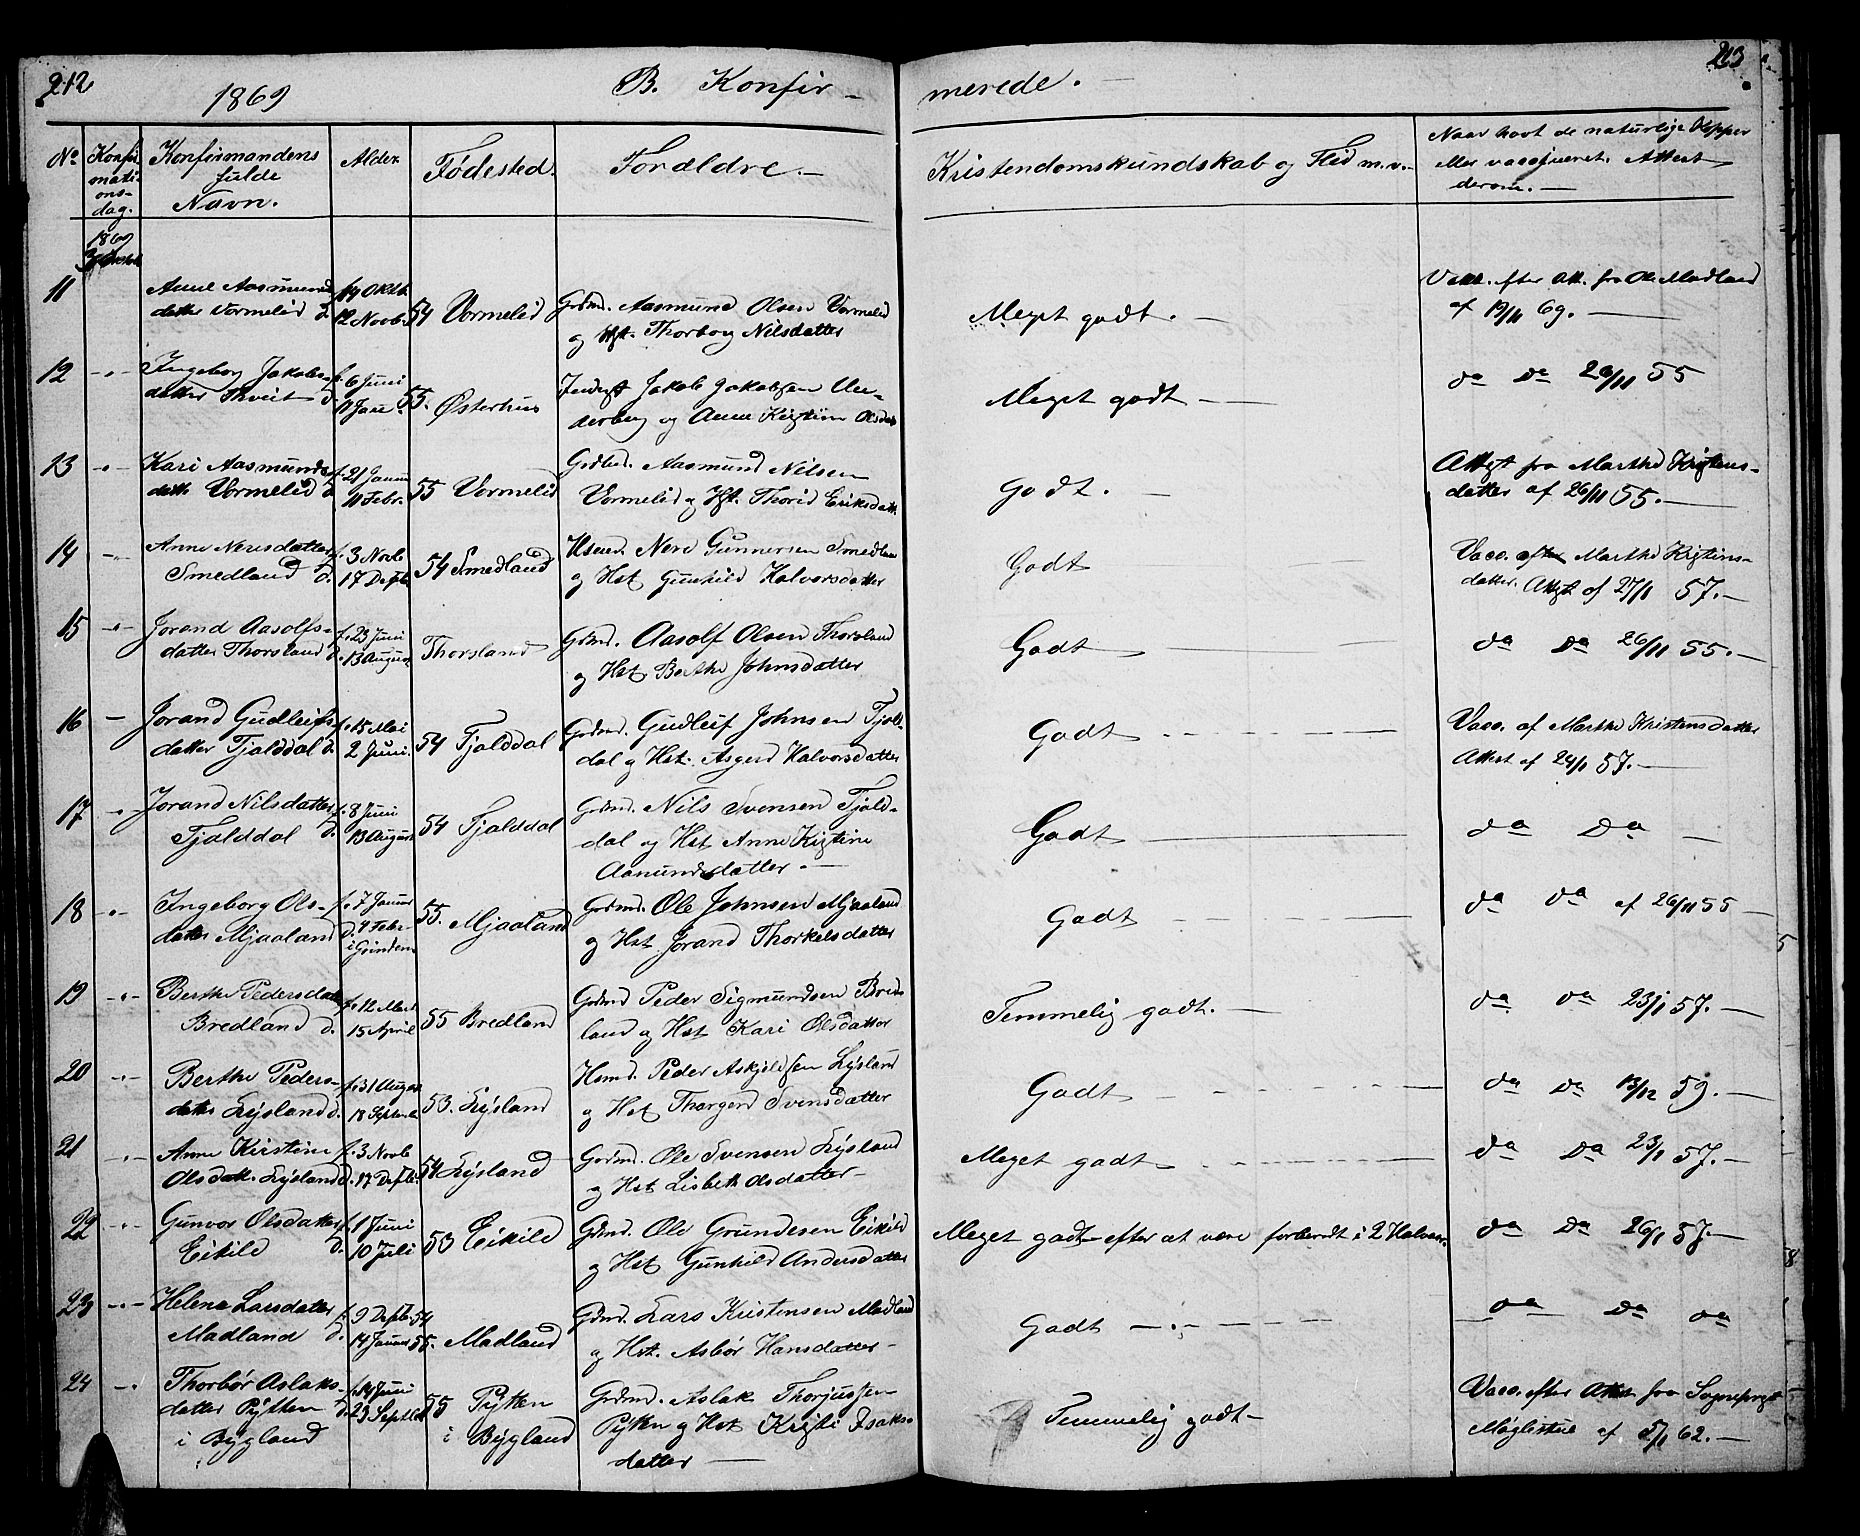 212
213
1869
B. Konfir-
merede.
No
Konfir
mati-
ons-
dag.
Konfirmandens
fulde
Navn.
Alder
Fødested.
Forældre.
Kristendomskundskab og Flid m.v.
Naar havt de naturlige Kopper
eller vaccineret. Attest
derom.
1869
11
Anne Aasmunds
datter Vormelid
f. 19 Oktb.
d. 12 Novb.
54 Vormelid
Grdmd. Aasmund Olsen Vormelid
og Hst. Thorborg Nilsdatter
Meget godt.
Vacc. efter Att. fra Ole Madland
af 19/11 69.
12
Ingeborg Jakobs-
datter Thveit
f. 6 Juni
55. Østerhus
Inderst Jakob Jakobsen Un-
derberg og Anne Kirstine Olsdatt
Meget godt
da Da 26/11 55
13
Kari Aasmunds
datt. Vormelid
f. 21 Januar
d. 11 Febr.
55 Vormelid
Grdmd. Aasmund Nilsen
Vormelid og Hst. Thorid Eriksdatt.
Godt.
Attest fra Marthe Kristens-
datter af 26/11 55.
14
Anne Neresdatter
Smedland
f. 3 Novb
d. 17 Deceb.
54 Smedland
Nere Gunnersen Smedland
og Hst Gunhild Halvorsdatter
Godt
Vacc. efter Marthe Kristins-
datter. Attest af 27/1 57.
15
Jorand Aasolfs-
datter Thorsland
f. 23 Juni
d. 13 August
Thorsland
Grdmd. Aasolf Olsen Thorsland
og Hst. Berthe Johnsdatter
Godt
da Da 26/11 55.
16
Jorand Gudleifs-
datter Tjalddal
f. 15 Mai
d. 2 Juni.
54 Tjalddal
Grdmd. Gudleif Johnsen Tjald-
dal og Hst. Asgerd Halvorsdatter
Godt
Vacc. af Marthe Kristensdatter
Attest af 24/1 57.
17
Jorand Nilsdatter
Tjalddal
f. 8 Juni
d. 13 August
54 Tjalddal
Grdmd. Nils Svensen Tjald-
dal og Hst Anne Kirstine
Aanundsdatter
Godt
da Da
18
Ingeborg Ols-
datter Mjaaland
f. 7 Januar
d. 4 Febr
i Grindem
55. Mjaaland
Grdmd. Ole Johnsen Mjaaland
og Hst Jorand Thorkelsdatter
Godt
da da af 26/11 55
19
Berthe Pedersdatt
Bredland
f. 12 Marts
d. 15 April
55 Bredland
Grdmd Peder Sigmundsen Bred-
land og Hst Kari Olsdatter
Temmelig godt.
da da 23/1 57.
20
Berthe Peders-
datter Lysland
f. 31 August
d. 18 Septemb
53. Lysland
Hsmd. Peder Askjeldsen Lysland
og Hst Thorgerd Svensdatter
Godt
da Da 13/12 59.
21
Anne Kirstine
Olsdatt. Lysland
f. 3 Novb
d. 17 Deceb.
54 Lysland
Grdmd. Ole Svensen Lysland
og Hst Lisbeth Olsdatter
Meget godt
da Da 23/1 57.
22
Gunvor Olsdatter
Eikild
f. 1 Juni
d. 10 Juli
53 Eikild
Grdmd. Ole Grundesen Eikild
og Hst Gunhild Andersdatter
Meget godt efter at være forberedt i 2 Halvaar.
da Da 26/1 57.
23
Helene Larsdatter
Madland
f. 9 Deceb. 54
d. 14 Januar 55.
Madland
Grdmd. Lars Kristensen Madland
og Hst. Asbør Hansdatter
Godt
da Da da
24
Thorbør Aslaks-
datter Pytten
i Bygland
f. 14 Juni
d. 23 Septbr
55 Pytten
i Bygland
Grdmd. Aslak Thorjussen
Pytten og Hst Kristi Isaks-
datter
Temmelig godt
Vacc. efter Attest fra Sogneprest
Møglestue af 5/1 62.